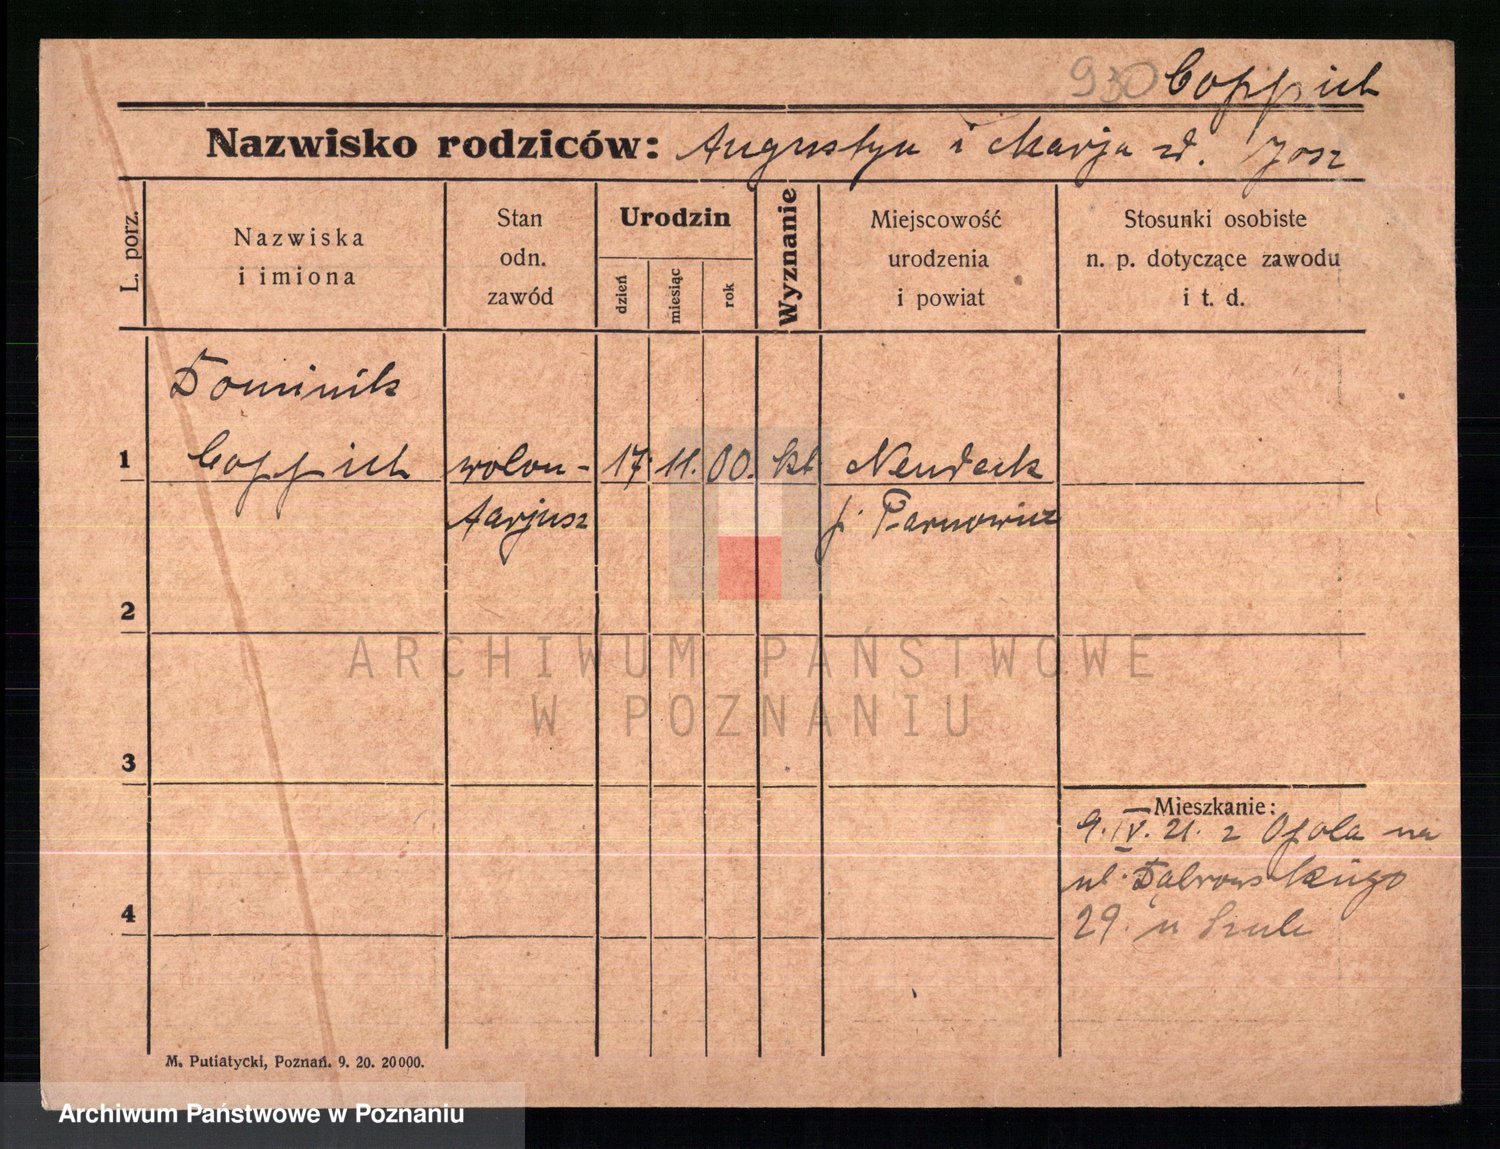 930 Coppich
Nazwisko rodziców: Augustyn i Marja zd. Josz
L. porz.
Nazwiska
i imiona
Stan
odn.
zawód
Urodzin
dzień
miesiąc
rok
Wyznanie
Miejscowość
urodzenia
i powiat
Stosunki osobiste
n. p. dotyczące zawodu
i t. d.
Dominik
1 Coppich wolon- 17. 11. 00. kt Neudeck
tarjusz p. Tarnowicz
2
ARCHIWUM PAŃSTWOWE
W POZNANIU
3
Mieszkanie:
9. IV. 21. z Opola na
ul. Dąbrowskiego
4
29. u Szulc
M. Putiatycki, Poznań. 9. 20. 20000.
Archiwum Państwowe w Poznaniu